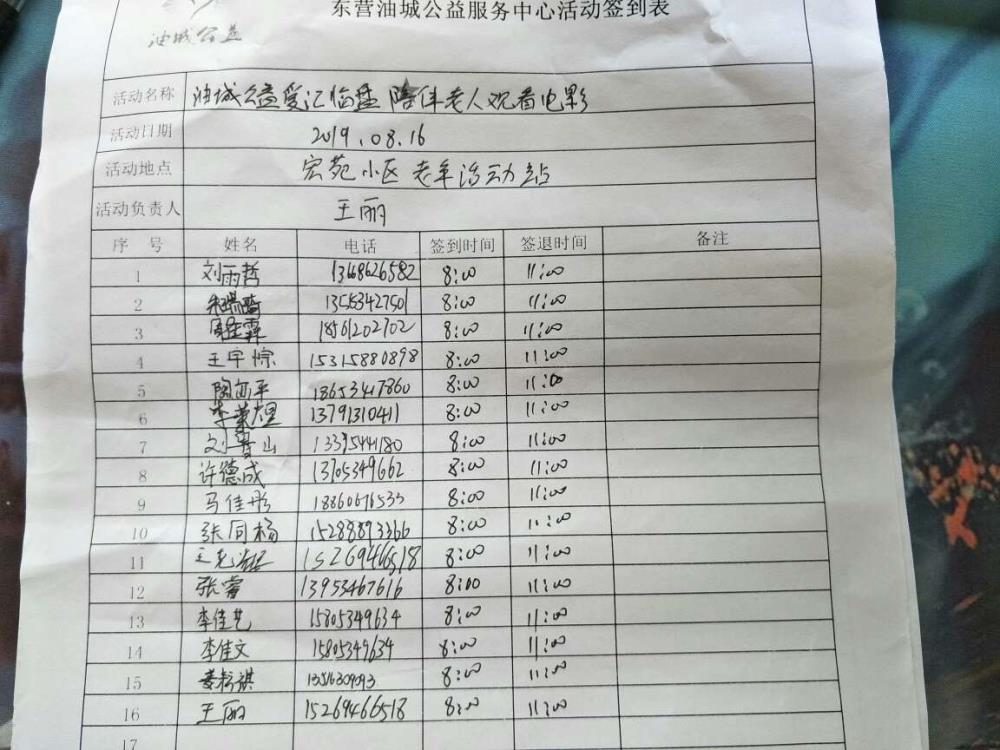 东营油城公益服务中心活动签到表
油城公益
活动名称 油城公益爱汇临盘 陪伴老人观看电影
活动日期 2019.08.16
活动地点 宏苑小区 老年活动站
活动负责人 王丽
序 号 姓名 电话 签到时间 签退时间 备注
1 刘雨哲 13668626582 8:00 11:00
2 13553427501 8:00 11:00
3 18561202702 8:00 11:00
4 王宇惊 15315880898 8:00 11:00
5 18653417860 8:00 11:00
6 13791310411 8:00 11:00
7 13395441180 8:00 11:00
8 许德成 13705349662 8:00 11:00
9 马佳彤 18860676533 8:00 11:00
10 张同杨 15288893366 8:00 11:00
11 15269466518 8:00 11:00
12 张 13953467616 8:00 11:00
13 李佳艺 15805349634 8:00 11:00
14 李佳文 15805349634 8:00 11:00
15 13516309093 8:00 11:00
16 王丽 15269466518 8:00 11:00
17